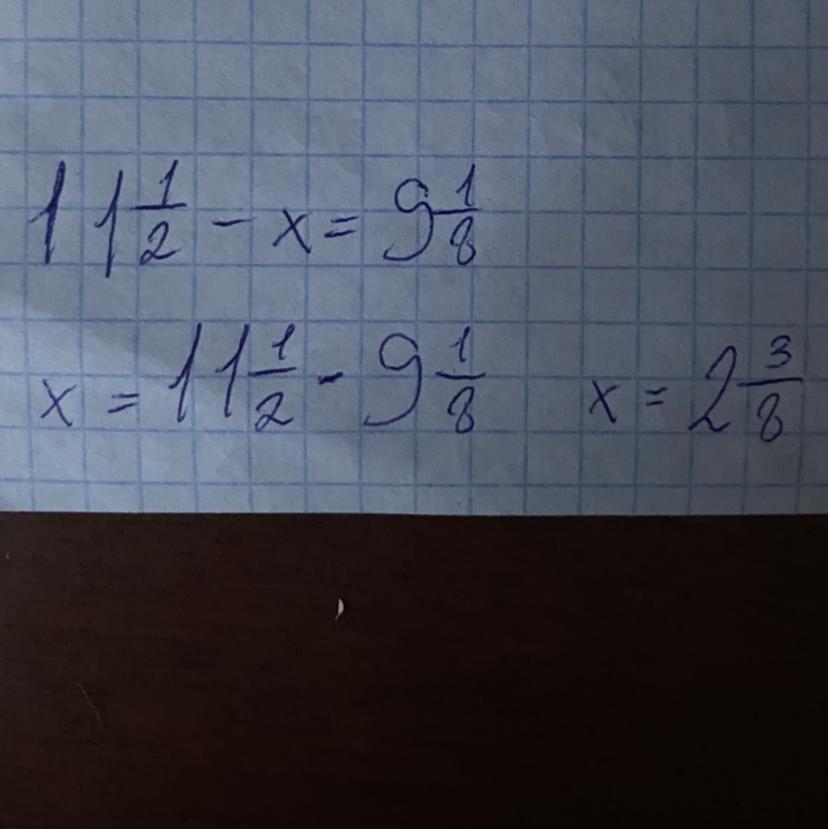 11 1/2 - x = 9 1/8
x = 11 1/2 - 9 1/8 x = 2 3/8